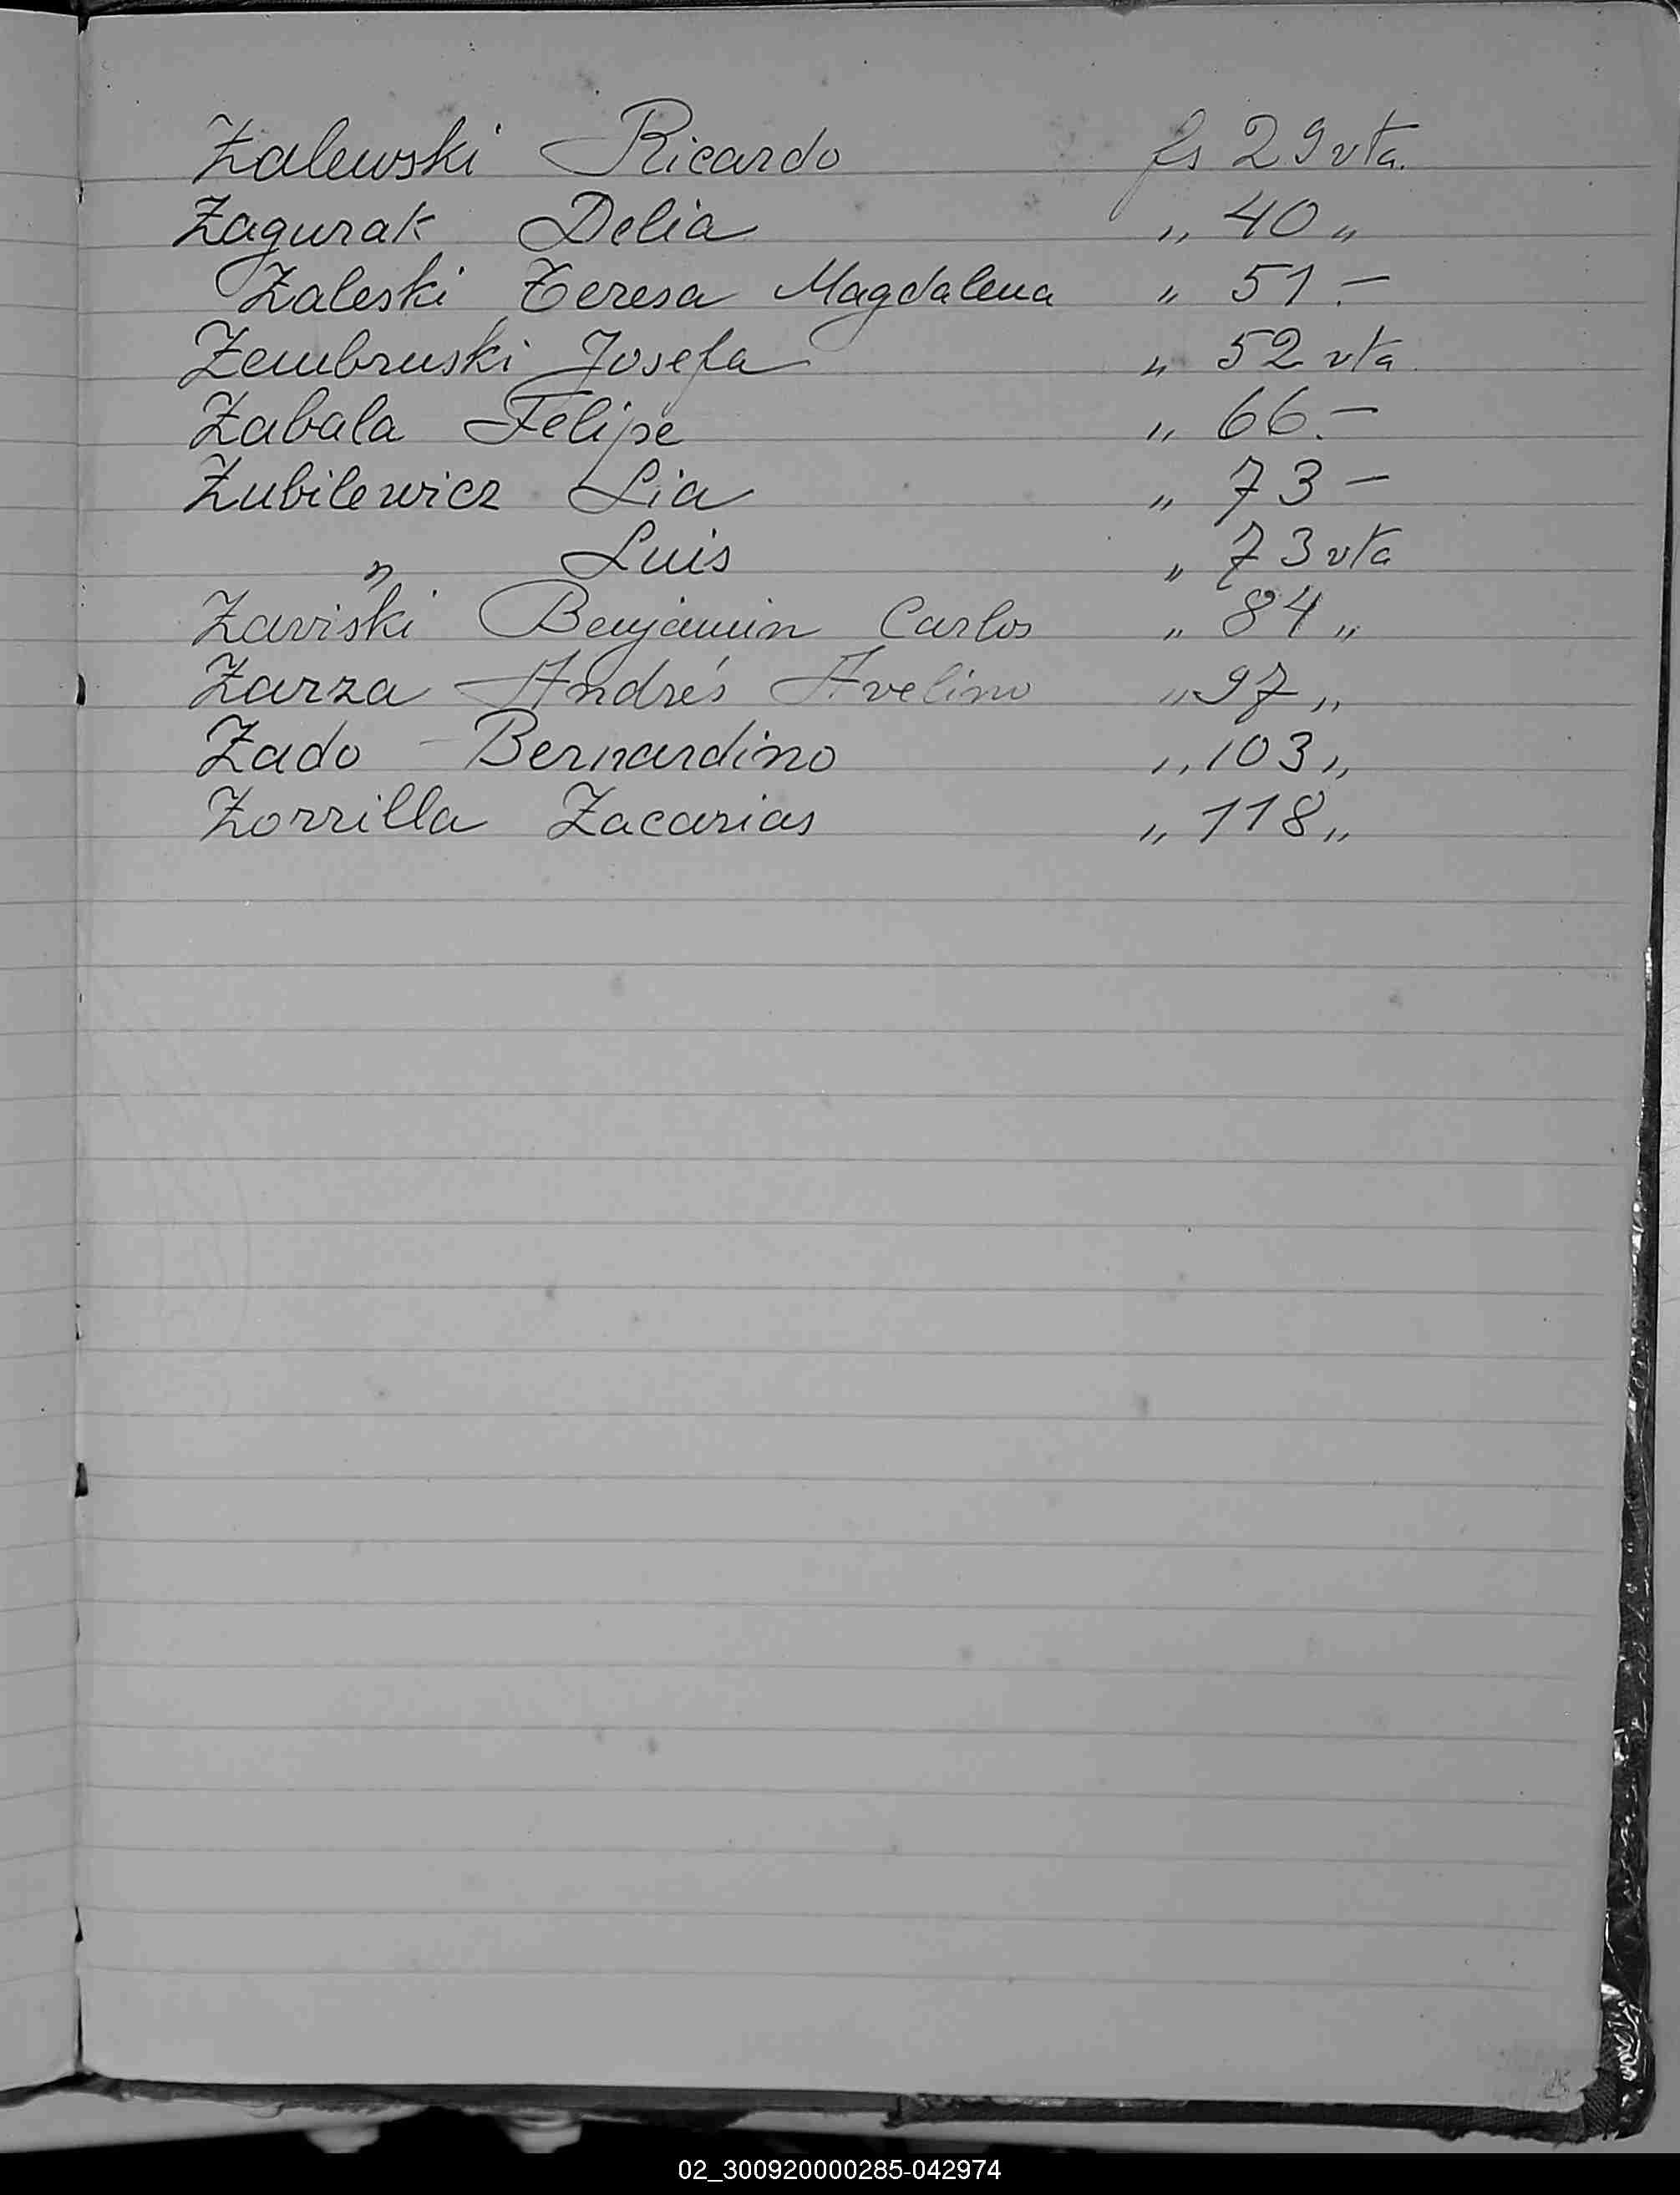 Zalewski Ricardo fs 29 vta.
Zagurak Delia „ 40 „
Zaleski Teresa Magdalena „ 51.—
Zembruski Josefa „ 52 vta.
Zabala Felipe „ 66.—
Zubilewicz Lia „ 73 —
„ Luis „ 73 vta
Zaviski Benjamin Carlos „ 84 „
Zarza Andrés Avelino „ 97 „
Zado Bernardino „ 103 „
Zorrilla Zacarias „ 118 „
02_300920000285-042974